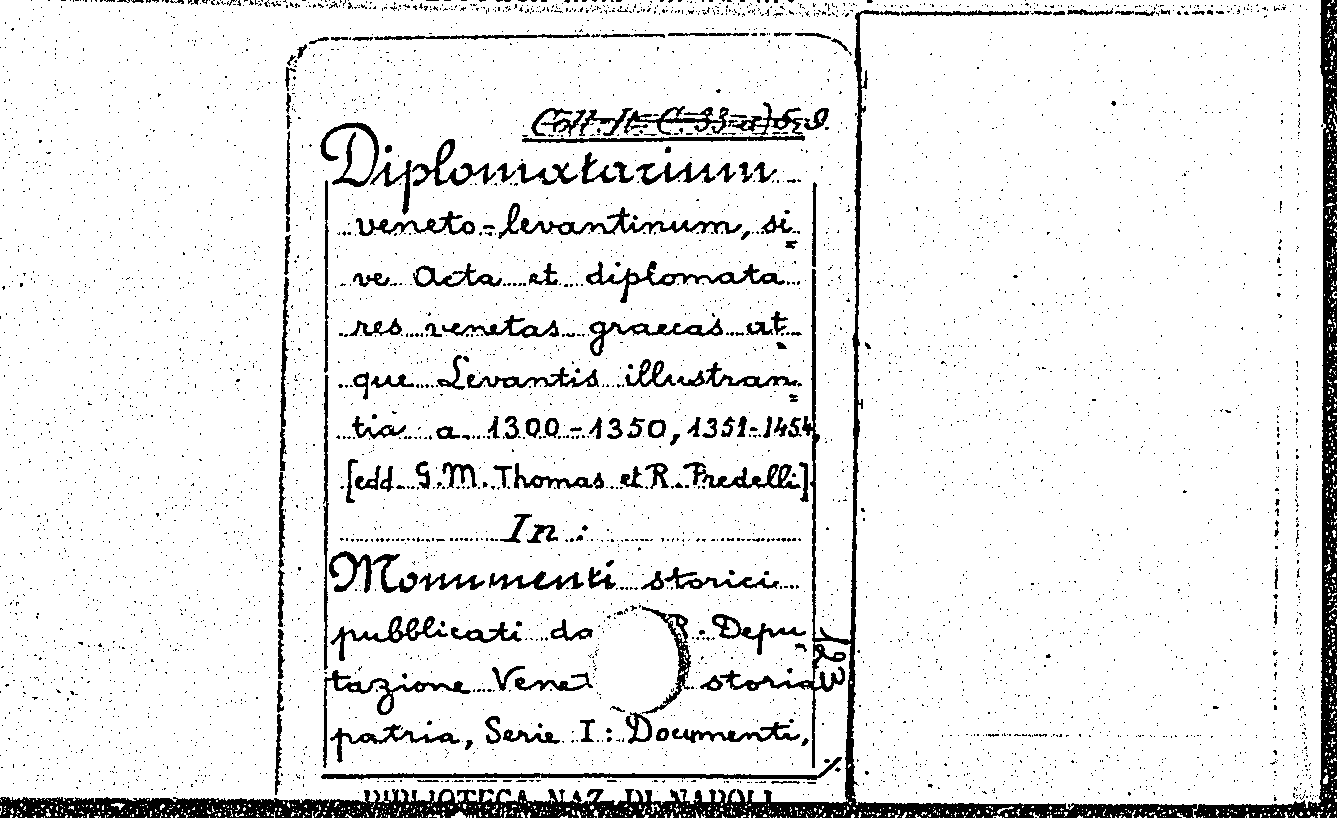 Coll. It. C. 33 a) 5, 9.
Diplomatarium
veneto-levantinum, si
ve Acta et diplomata
res venetas graecas at
que Levantis illustran
tia a. 1300-1350, 1351-1454,
[edd. G.M. Thomas et R. Predelli].
In:
Monumenti storici
pubblicati R. Depu
tazione storia
patria, Serie I: Documenti,
BIBLIOTECA NAZ. DI NAPOLI